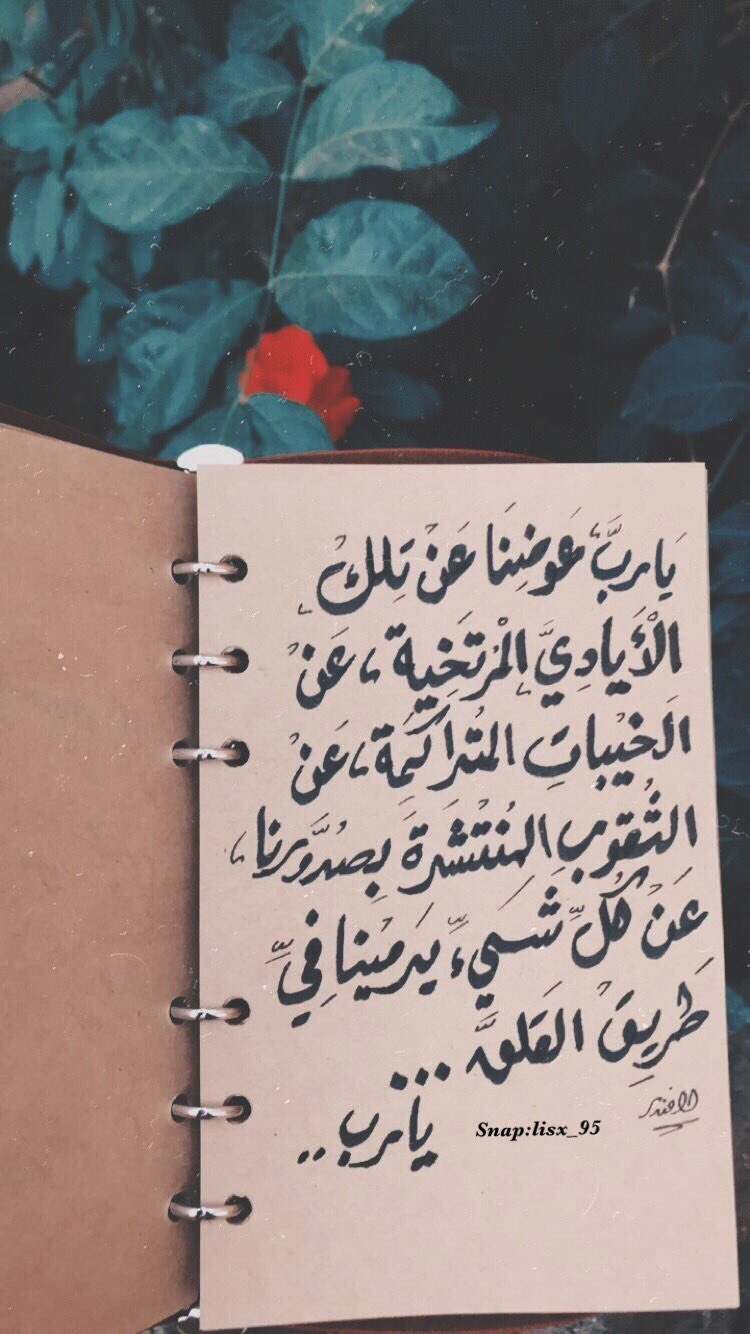 يَاربَّ، عَوضِنَا عَنْ تِلكْ
الْأَيادِيَّ الْمُرتَخِية، عَنْ
الخَيْباتِ المُتراكَمِة، عَنْ
الثُقوبِ المُنتْشرَة بِصدُورِنا،
عَنْ كُلِّ شَيءٍ يَرمْينا فِيِّ
طَريِقَ القَلقَّ...
يَارب..
Snap:lisx_95